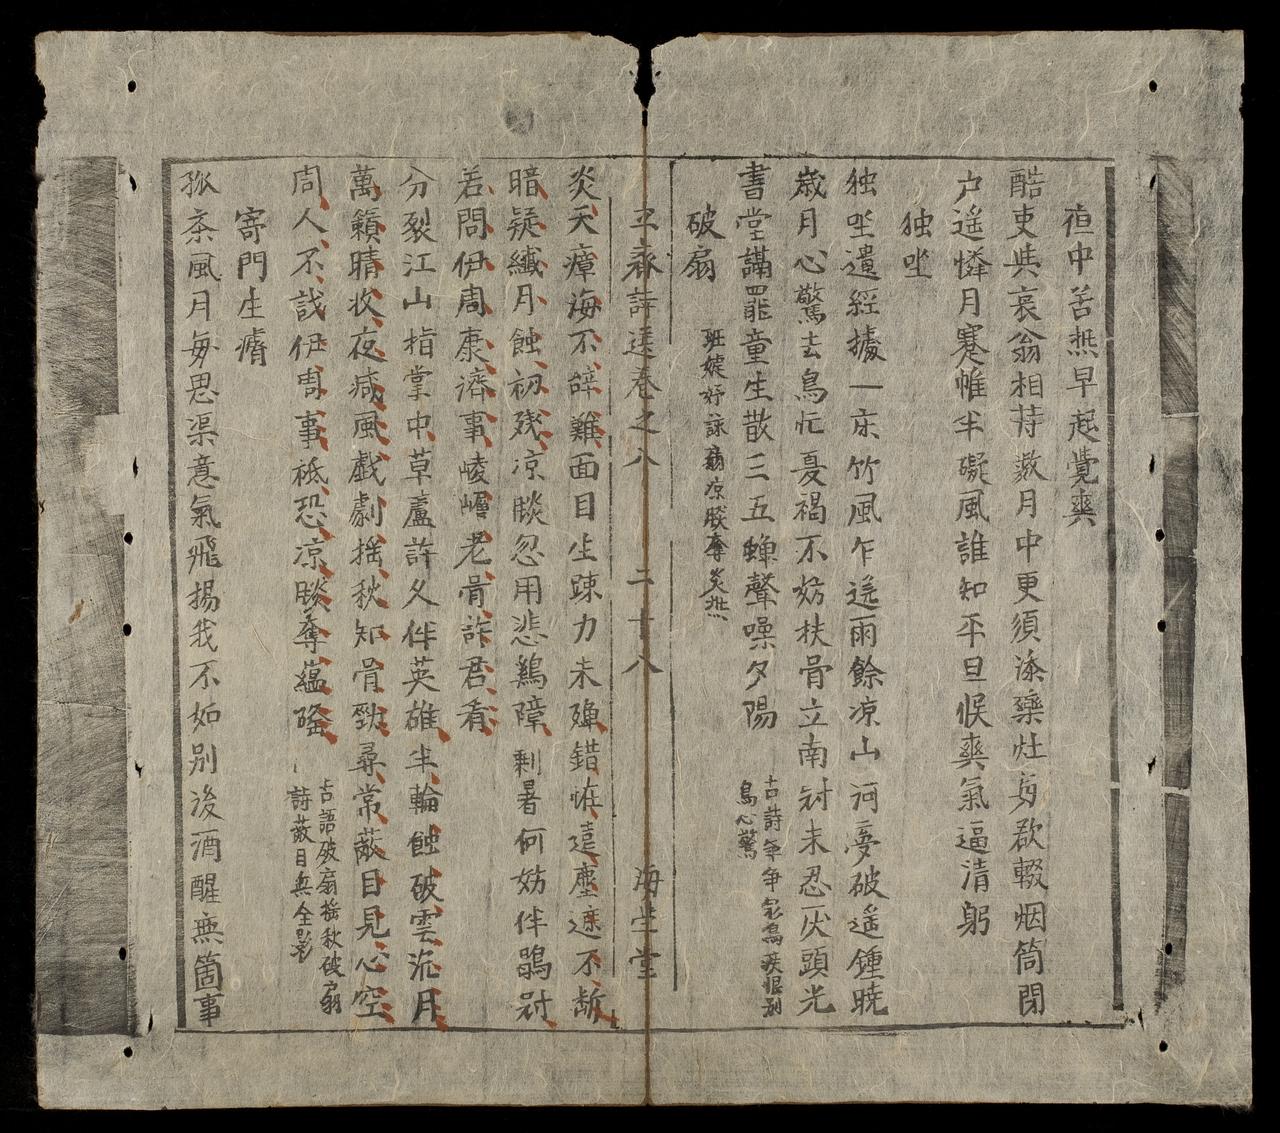 夜中苦熱早起覺爽
酷吏其哀翁相持數月中更須添藥灶每欲輟烟筒閉
户遥憐月褰帷半礙風誰知平旦候爽氣逼清躬
独坐
独坐遣經據一床竹風乍送雨餘凉山河夢破遥鍾曉
歲月心驚去鳥忙憂褐不妨扶骨立南冠未忍厌頭光
書堂講罷童生散三五蟬聲噪夕陽
古詩
鳥心驚
破扇
班婕妤詠扇凉飈奪炎熱
平斎詩選卷之八 二十八 海坐堂
炎天瘴海不辞難面目生踈力未殫錯恠遠塵遮不斷
暗疑纖月蝕初殘凉飈忽用悲鷄障剩暑何妨伴鶡冠
若問伊周康濟事崚嶒老骨許君看
分裂江山指掌中草廬許久伴英雄半輪蝕破雲流月
萬籟晴收夜减風戲劇揺秋知骨勁尋常蔽目見心空
周人不識伊周事祗恐凉飈奪蕴隆
古語破扇揺秋破扇
詩蔽目無全影
寄門生
孤斎風月每思渠意氣飛揚我不如别後酒醒無箇事